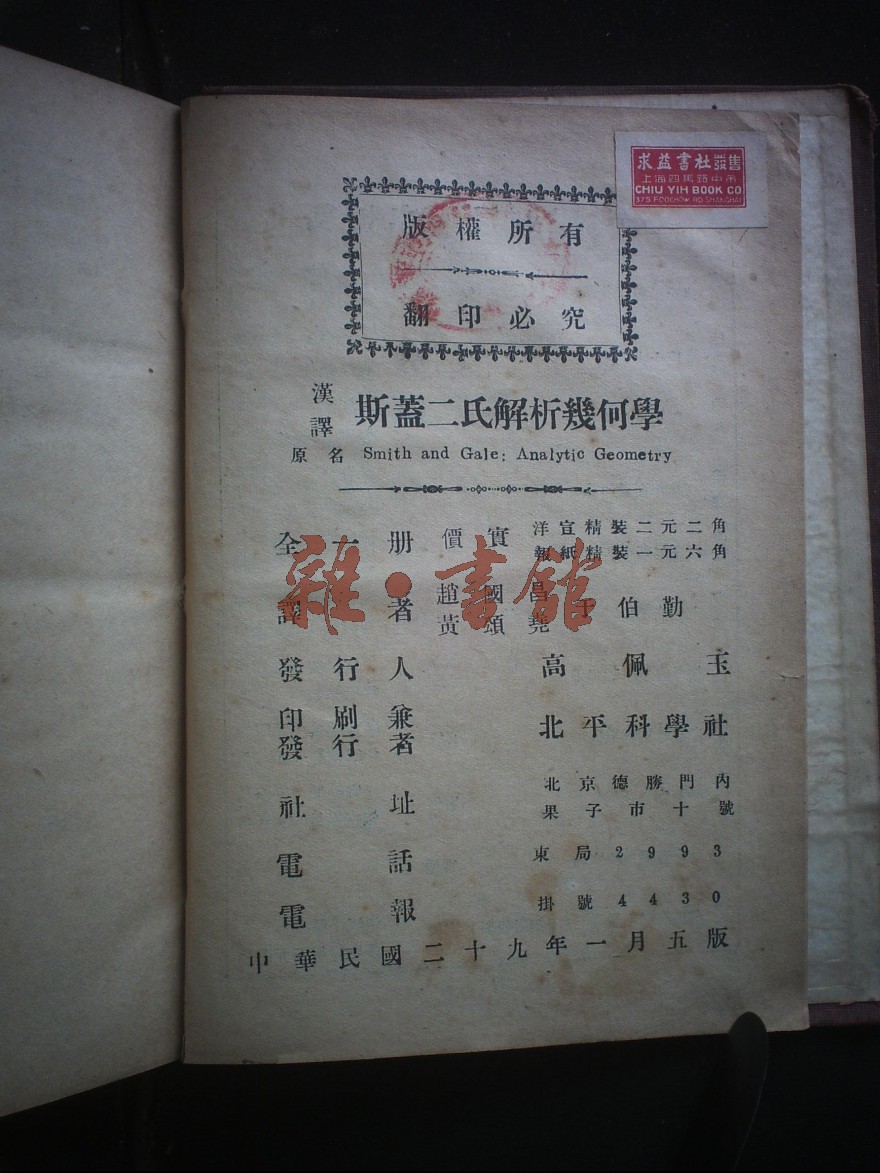 求益書社發售
上海四馬路中市
CHIU YIH BOOK CO
375 FOOCHOW RD. SHANGHAI
版權所有
翻印必究
漢譯 斯蓋二氏解析幾何學
原名 Smith and Gale: Analytic Geometry
全一册 實價 洋宣精裝二元二角
報紙精裝一元六角
譯者 趙國昌 黃頌堯 王伯勤
雜·書館
發行人 高佩玉
印刷兼
發行者 北平科學社
社址 北京德勝門內
果子市十號
電話 東局2993
電報 掛號4430
中華民國二十九年一月五版